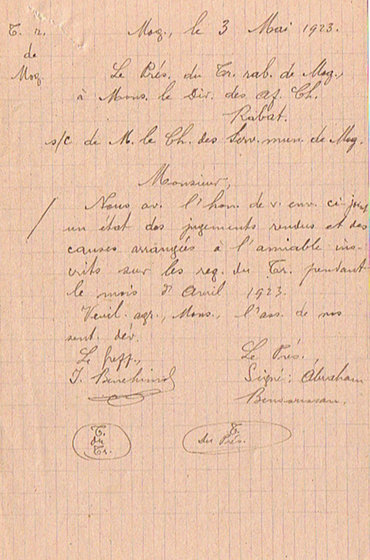 T. r.
de
Mog.
Mog., le 3 Mai 1923.
Le Prés. du Tr. rab. de Mog.,
à Mons. le Dir. des aff. Ch.
Rabat.
s/c de M. le Ch. des Serv. mun. de Mog.
Monsieur,
Nous av. l'hon. de v. env. ci-joint
un état des jugements rendus et des
causes arrangées à l'amiable ins-
crits sur les reg. du Tr. pendant
le mois d'Avril 1923.
Veuil. agr., Mons., l'ass. de nos
sent. dév.
Le greff.,
Le Prés.,
Signé: Abraham
T.
du
Tr.
T.
du Prés.